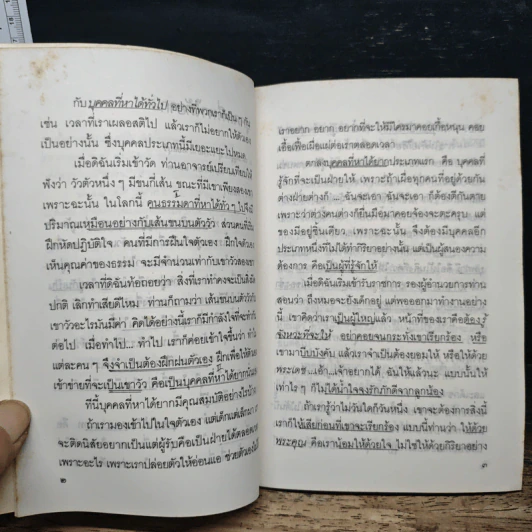 กับบุคคลที่หาได้ทั่วไป อย่างที่พวกเราก็เป็น ๆ กัน
เช่น เวลาที่เราเผลอสติไป แล้วเราก็ไม่อยากให้ตัวเอง
เป็นอย่างนั้น ซึ่งบุคคลประเภทนี้มีเยอะแยะไปหมด
เมื่อดิฉันเริ่มเข้าวัด ท่านอาจารย์เปรียบเทียบให้
ฟังว่า วัวตัวหนึ่ง ๆ มีขนกี่เส้น ขณะที่มีเขาเพียงสอง
เพราะฉะนั้น ในโลกนี้ คนธรรมดาที่หาได้ทั่ว ๆ ไปจึงมี
ปริมาณเหมือนอย่างกับเส้นขนบนตัววัว ส่วนคนที่
ฝึกหัดปฏิบัติใจ คนที่มีการฝืนใจตัวเอง ฝึกใจตัวเอง
เห็นคุณค่าของธรรม จะมีจำนวนเท่ากับเขาวัวสองเขา
เวลาที่ดิฉันท้อถอยว่า สิ่งที่เราทำคงจะเป็นสิ่งผิด
ปกติ เลิกทำเสียดีไหม ท่านก็ถามว่า เส้นขนบนตัววัวกับ
เขาวัวอะไรมันมีค่า คิดได้อย่างนี้เราก็มีกำลังใจที่จะทำ
ต่อไป เมื่อทำไป... ทำไป เราก็ค่อยเข้าใจขึ้นว่า
แต่ละคน ๆ จึงจำเป็นต้องฝึกฝนตัวเอง ฝึกเพื่อให้ตัวเอง
เข้าข่ายที่จะเป็นเขาวัว คือเป็นบุคคลที่หาได้ยากนั่นเอง
ทีนี้บุคคลที่หาได้ยากมีคุณสมบัติอย่างไรบ้าง
ถ้าเรามองเข้าไปในใจตัวเอง แต่เด็กแต่เล็กมา
จะติดนิสัยอยากเป็นแต่ผู้รับคือเป็นฝ่ายได้ตลอดเวลา
เพราะอะไร เพราะเราปล่อยตัวให้อ่อนแอ ช่วยตัวเองไม่
๒
เราอยาก อยากๆ อยากที่จะให้มีใครมาคอยเกื้อหนุน คอย
เอื้อเฟื้อเผื่อแผ่ต่อเราตลอดเวลา
ตกลงบุคคลที่หาได้ยากประเภทแรก คือ บุคคลที่
รู้จักที่จะเป็นฝ่ายให้ เพราะถ้าเผื่อทุกคนที่อยู่ด้วยกัน
ต่างฝ่ายต่างก็ ...ฉันจะเอา ฉันจะเอา ก็ต้องตีกันตาย
เพราะว่าต่างคนต่างก็ยื่นมือมาคอยจ้องจะตะครุบ แต่
ของมีอยู่ชิ้นเดียว เพราะฉะนั้น จึงต้องมีบุคคลอีก
ประเภทหนึ่งที่ไม่ได้ทำกิริยาอย่างนั้น แต่เป็นผู้สนองความ
ต้องการ คือเป็นผู้ที่รู้จักให้
เมื่อดิฉันเริ่มเข้ารับราชการ รองผู้อำนวยการท่าน
สอนว่า ถึงหมอจะยังเด็กอยู่ แต่พอออกมาทำงานอย่าง
นี้ เขาคิดว่าเราเป็นผู้ใหญ่แล้ว หน้าที่ของเราคือต้องรู้
จังหวะที่จะให้ อย่าคอยจนกระทั่งเขาเรียกร้อง หรือ
เขามาบีบบังคับ แล้วเราจำเป็นต้องยอมให้ หรือให้ด้วย
พระเดช ...เอ้า...เจ้าอยากได้ ฉันให้แล้วนะ แบบนั้นให้
เท่าไร ๆ ก็ไม่ได้น้ำใจจงรักภักดีจากลูกน้อง
ถ้าเรารู้ว่าไม่วันใดก็วันหนึ่ง เขาจะต้องการสิ่งนี้
เราก็ให้เสียก่อนที่เขาจะเรียกร้อง แบบนี้ท่านว่า ให้ด้วย
พระคุณ คือเราน้อมให้ด้วยใจ ไม่ใช่ให้ด้วยกิริยาอย่าง
๓